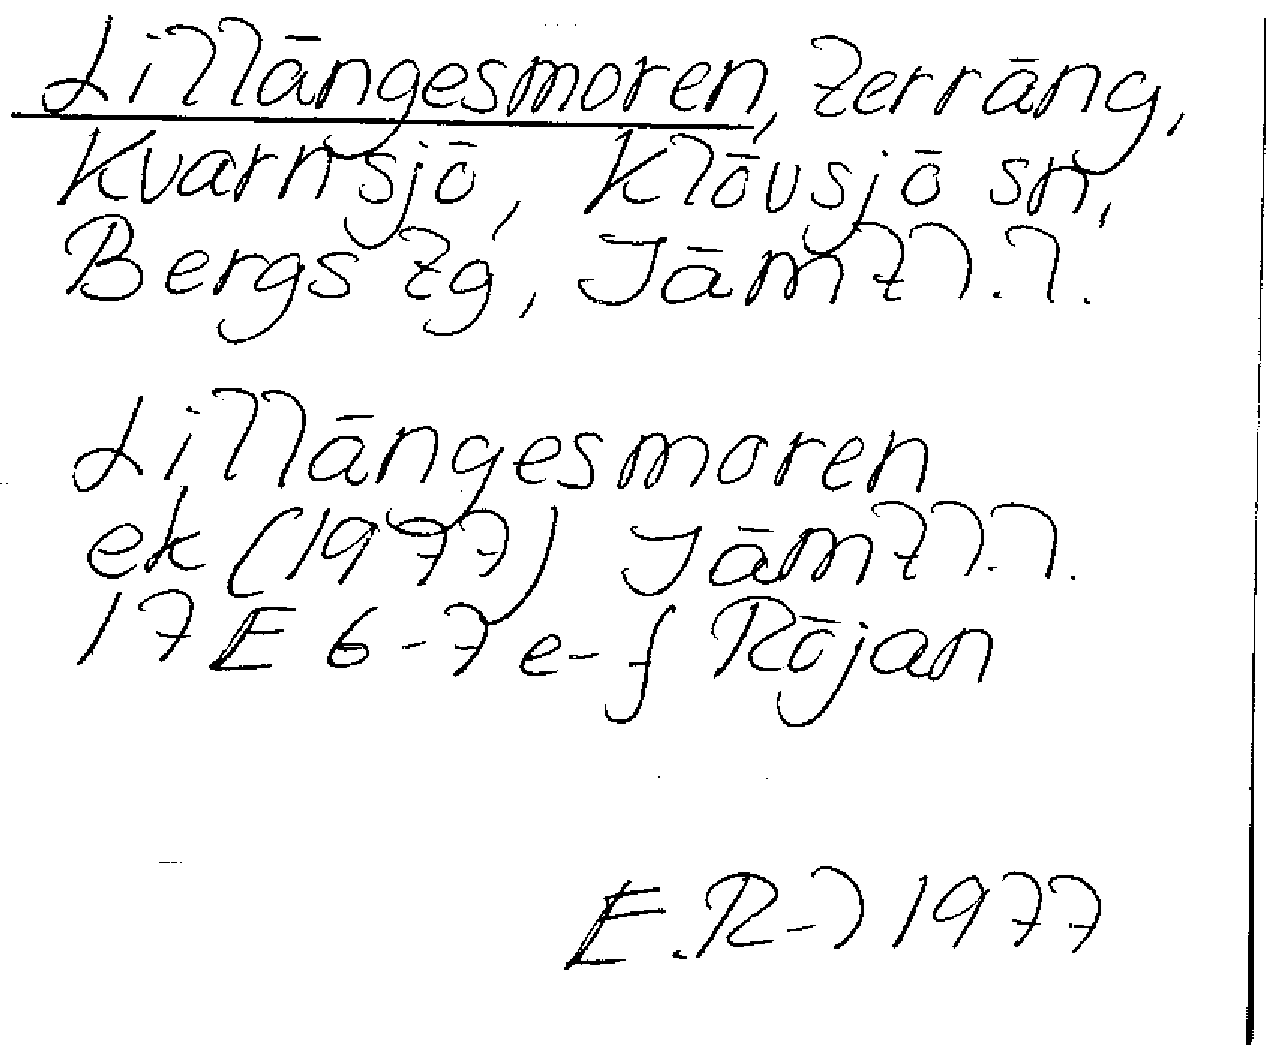 Lillängesmoren, terräng,
Kvarnsjö, Klövsjö sn,
Bergs tg, Jämtl. l.
Lillängesmoren
ek (1977) Jämtl. l.
17 E 6-7 e-f Röjan
E. R-l 1977